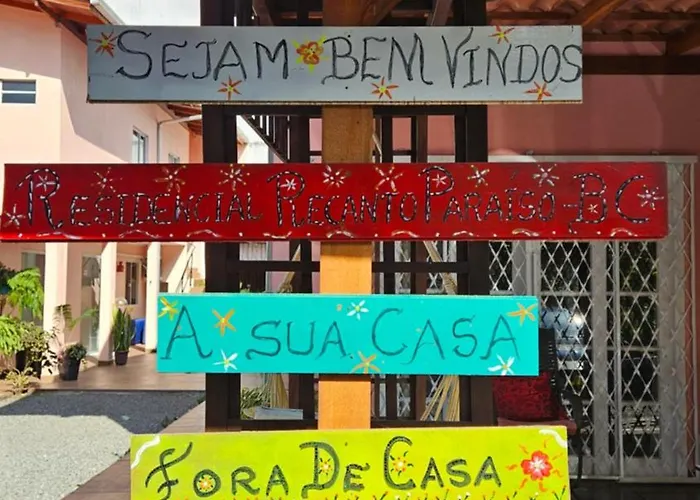 Sejam Bem Vindos
Residencial Recanto Paraíso - BC
A sua Casa
Fora De Casa